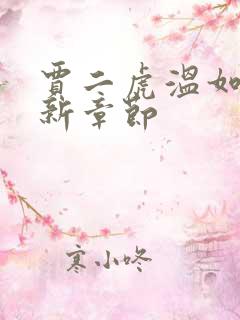 贾二虎温如
新章节
寒小咚